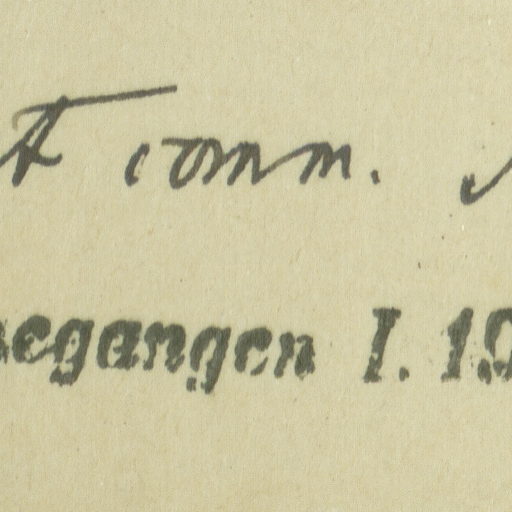 comm.
gegangen I. 19